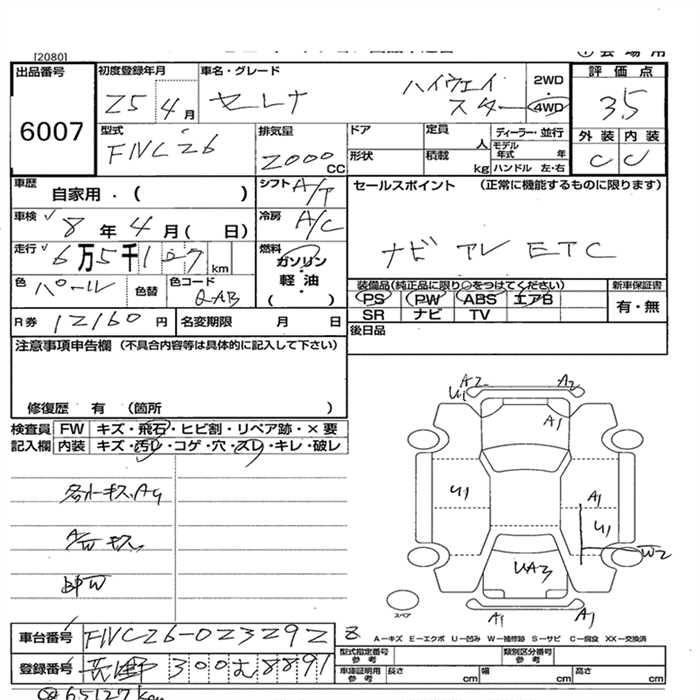 [2080]
出品番号 初度登録年月 車名・グレード 評価点
6007
25 4月 セレナ ハイウェイ スター 2WD ・ 4WD 3.5
外装 内装
C C
型式 排気量 ドア 定員 人 ディーラー・並行
FNC26 2000cc 形状 積載 kg モデル年式 年
ハンドル 左・右
車歴 自家用・( ) シフト A/T セールスポイント (正常に機能するものに限ります)
車検 8年4月( 日) 冷房 A/C
ナビ TV ETC
走行 6万5千127km 燃料 ガソリン 軽油 ( )
色 パール 色替 色コード QAB
装備品(純正品に限り○をつけてください) 新車保証書
PS PW ABS エアB 有・無
SR ナビ TV
R券 12160円 名変期限 月 日 後日品
注意事項申告欄 (不具合内容等は具体的に記入して下さい)
修復歴 有 (箇所 )
検査員 FW キズ・飛石・ヒビ割・リペア跡・×要
記入欄 内装 キズ・汚レ・コゲ・穴・スレ・キレ・破レ
A2 A2
U1 A1
U1 A1
U1
W2
UA3
スペア A1 A1
A−キズ E−エクボ U−凹み W−補修跡 S−サビ C−腐食 XX−交換済
車台番号 FNC26-023292
型式指定番号 参考 類別区分番号 参考
登録番号 長野 300 む 8891
車庫証明用 参考 長さ cm 幅 cm 高さ cm
65127km